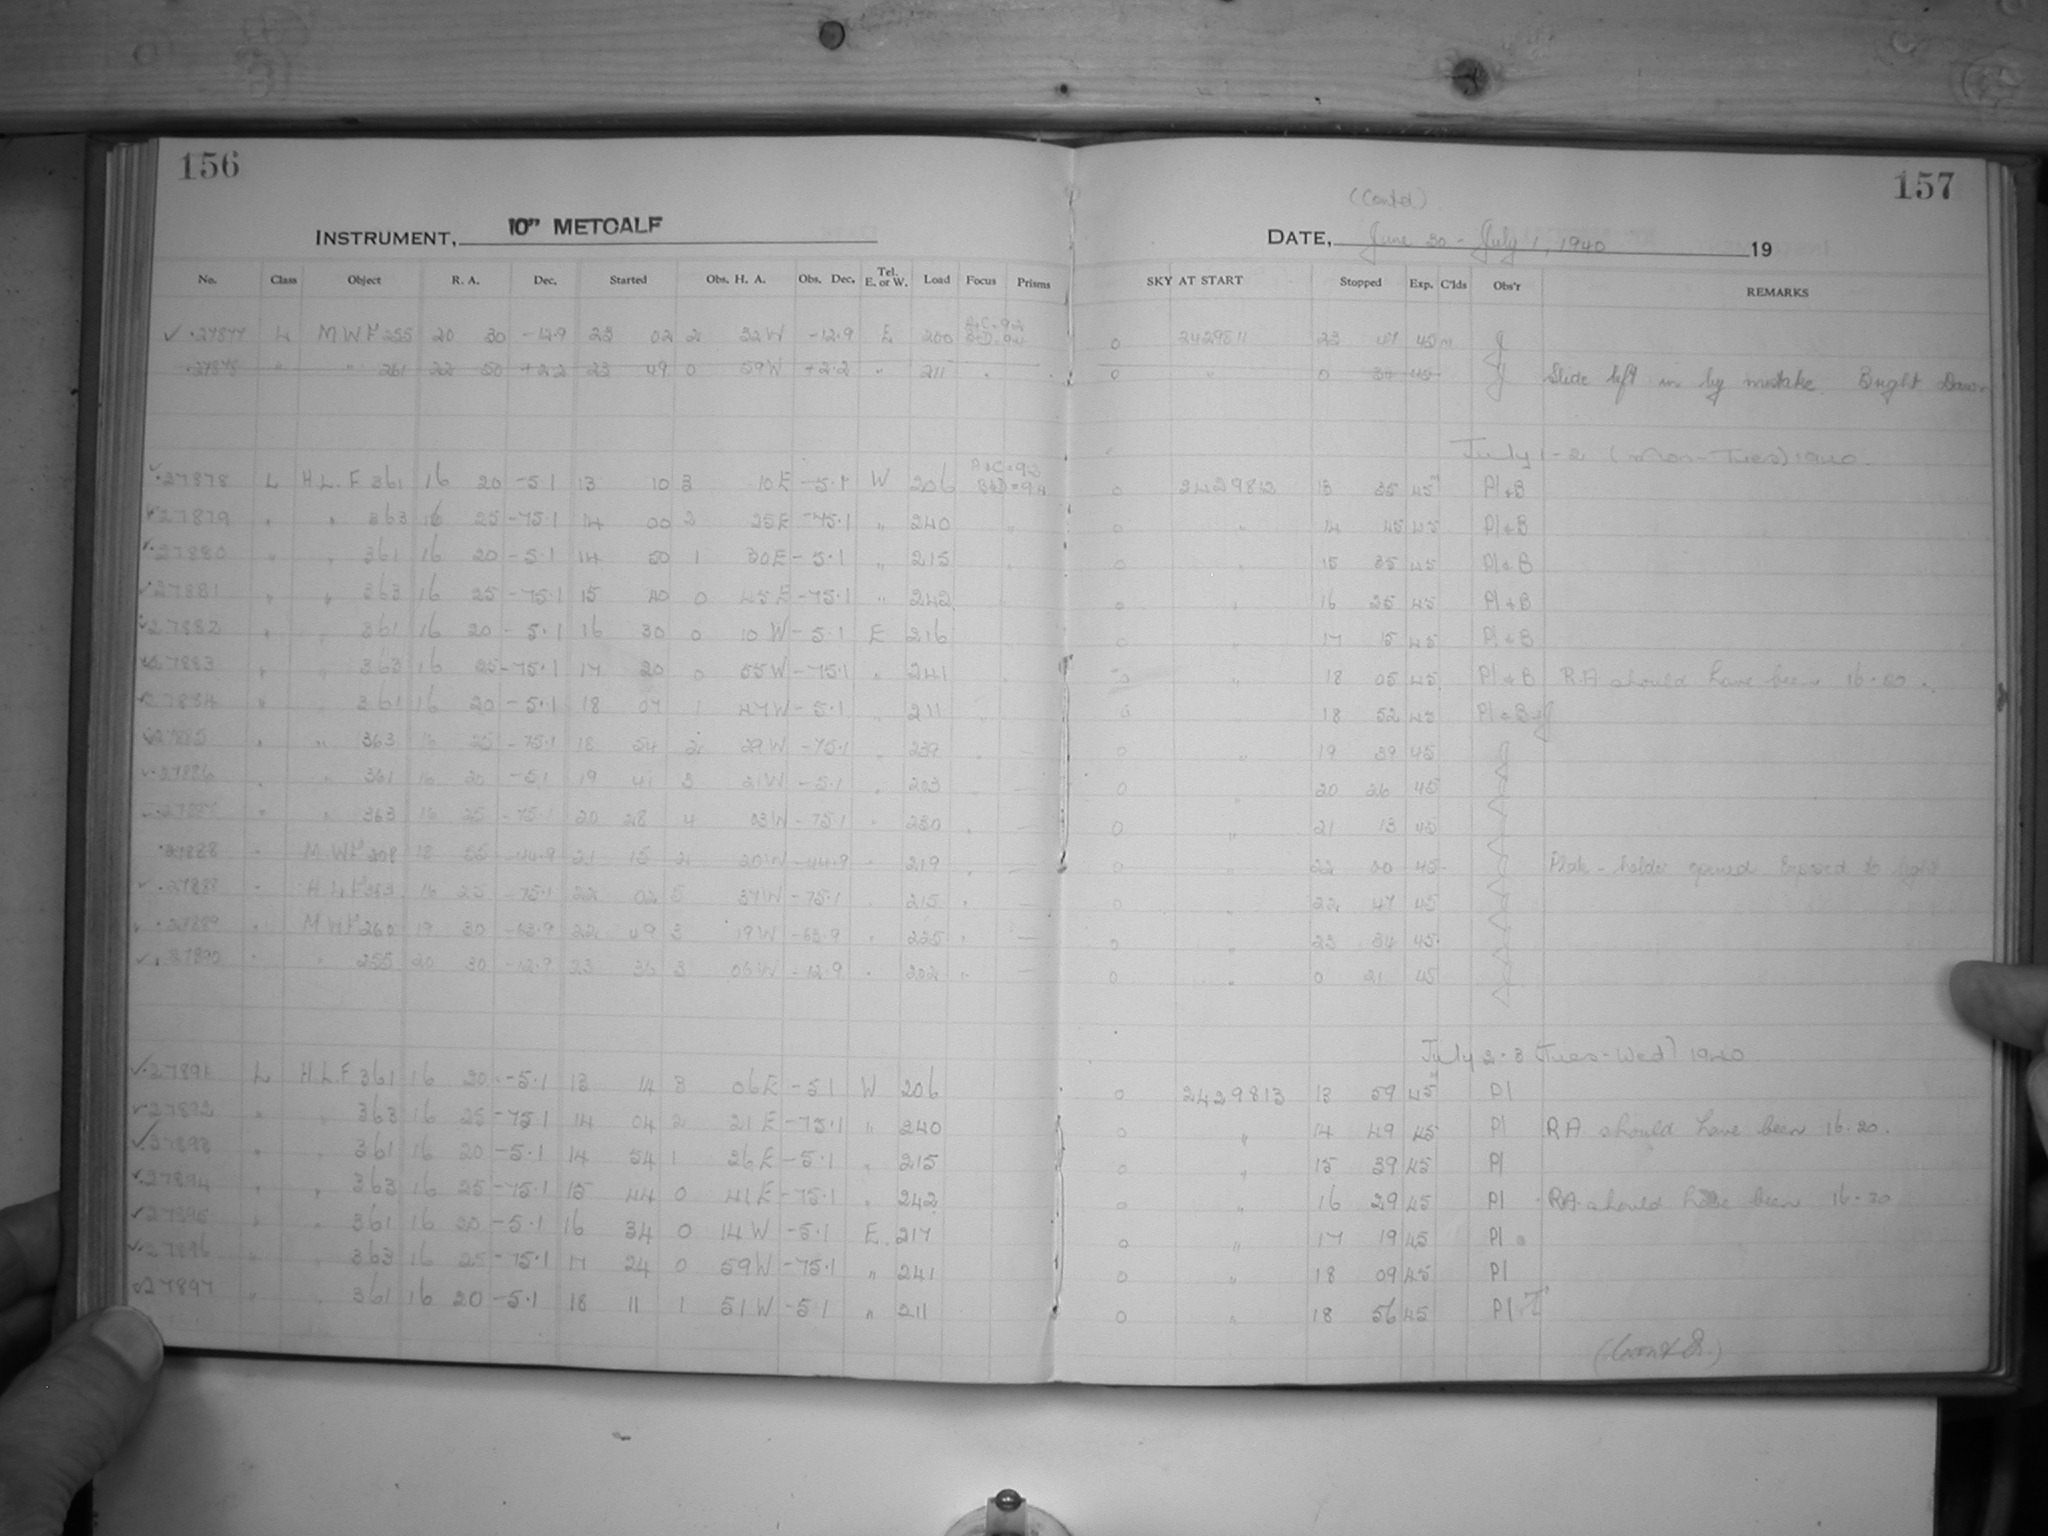 156
157
INSTRUMENT, 10" METCALF
(Contd)
DATE, June 30 - July 1, 1940 19
No. Class Object R. A. Dec. Started Obs. H. A. Obs. Dec. Tel. E. or W. Load Focus Prisms SKY AT START Stopped Exp. C'lds Obs'r REMARKS
27877 L M.W.F 255 20 30 -12.9 23 02 2 32W -12.9 E 200 0 2429811 23 47 45m J
27878 " " 261 22 50 +2.2 23 49 0 59W +2.2 " 211 0 " 0 34 45 J Slide left in by mistake. Bright Dawn
July 1-2 (Mon-Tues) 1940
27878 L H.L.F 361 16 20 -5.1 13 10 3 10E -5.1 W 206 A+C=93 B+D=94 0 2429812 13 55 45m Pl+B
27879 " " 363 16 25 -75.1 14 00 2 25E -75.1 " 240 0 " 14 45 45 Pl+B
27880 " " 361 16 20 -5.1 14 50 1 30E -5.1 " 215 0 " 15 35 45 Pl+B
27881 " " 363 16 25 -75.1 15 40 0 45E -75.1 " 242 0 " 16 25 45 Pl+B
27882 " " 361 16 20 -5.1 16 30 0 10W -5.1 E 216 0 " 17 15 45 Pl+B
27883 " " 363 16 25 -75.1 17 20 0 55W -75.1 " 241 0 " 18 05 45 Pl+B RA should have been 16.20.
27884 " " 361 16 20 -5.1 18 07 1 47W -5.1 " 211 0 " 18 52 45 Pl+B+J
27885 " " 363 16 25 -75.1 18 54 2 29W -75.1 " 239 0 " 19 39 45 J
27886 " " 361 16 20 -5.1 19 41 3 21W -5.1 " 203 0 " 20 26 45
27887 " " 363 16 25 -75.1 20 28 4 03W -75.1 " 230 0 " 21 13 45
27888 " M.W.F 208 18 55 -44.9 21 15 2 20W -44.9 " 219 0 " 22 00 45 Plate-holder opened Exposed to light
27888 " H.L.F 363 16 25 -75.1 22 02 5 37W -75.1 " 215 0 " 22 47 45
27889 " M.W.F 260 19 30 -63.9 22 49 3 19W -63.9 " 225 0 " 23 34 45
27890 " " 255 20 30 -12.9 23 36 3 06W -12.9 " 202 0 " 0 21 45
July 2-3 (Tues-Wed) 1940
27891 L H.L.F 361 16 20 -5.1 13 14 3 06E -5.1 W 206 0 2429813 13 59 45m Pl
27892 " " 363 16 25 -75.1 14 04 2 21E -75.1 " 240 0 " 14 49 45 Pl RA should have been 16.20.
27893 " " 361 16 20 -5.1 14 54 1 26E -5.1 " 215 0 " 15 39 45 Pl
27894 " " 363 16 25 -75.1 15 44 0 41E -75.1 " 242 0 " 16 29 45 Pl RA should have been 16.20
27895 " " 361 16 20 -5.1 16 34 0 14W -5.1 E 217 0 " 17 19 45 Pl
27896 " " 363 16 25 -75.1 17 24 0 59W -75.1 " 241 0 " 18 09 45 Pl
27897 " " 361 16 20 -5.1 18 11 1 51W -5.1 " 211 0 " 18 56 45 Pl
(Contd.)